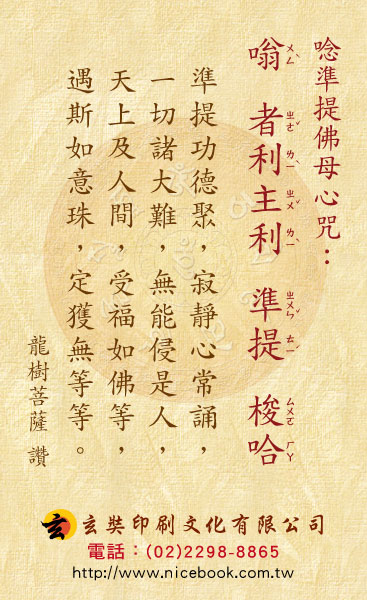 唸準提佛母心咒：
嗡 者利主利 準提 梭哈
ㄨㄥ ㄓㄜˇ ㄌㄧˋ ㄓㄨˇ ㄌㄧˋ ㄓㄨㄣˇ ㄊㄧˊ ㄙㄨㄛ ㄏㄚ
準提功德聚，寂靜心常誦，
一切諸大難，無能侵是人，
天上及人間，受福如佛等，
遇斯如意珠，定獲無等等。
龍樹菩薩 讚
玄奘印刷文化有限公司
電話：(02)2298-8865
http://www.nicebook.com.tw